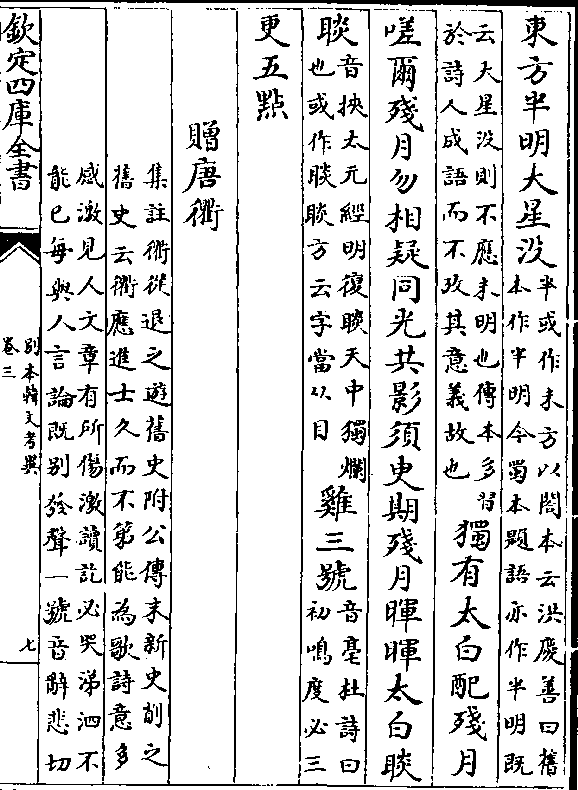 東方半明大星没
半或作未方以閣本云洪慶善曰舊
本作半明今蜀本題語亦作半明既
云大星没則不應未明也傳本多習
於詩人成語而不攷其意義故也
獨有太白配殘月
嗟爾殘月勿相疑同光共影須臾期殘月暉暉太白睒
睒
音抰太元經明復睒天中獨爛
也或作睒睒方云字當从目
雞三號
音亳杜詩曰
初鳴度必三
更五點
贈唐衢
集註衢從退之遊舊史附公傳末新史削之
舊史云衢應進士久而不第能為歌詩意多
感激見人文章有所傷激讀訖必哭涕泗不
能已每與人言論既别發聲一號音辭悲切
欽定四庫全書
别本韓文考異
卷三
七